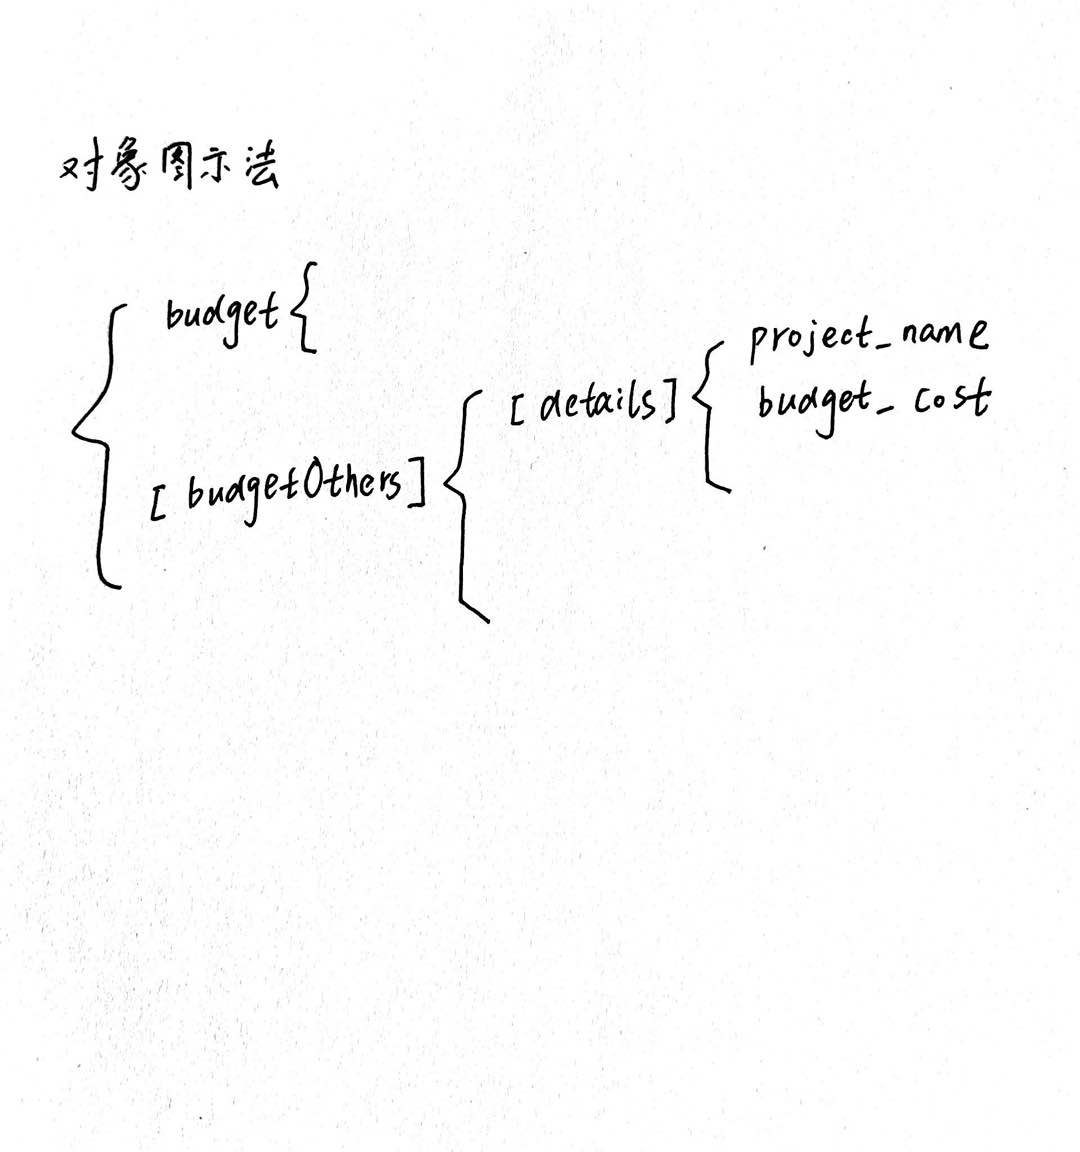 对象图示法
budget {
[budgetOthers] {
[details] {
project_name
budget_cost